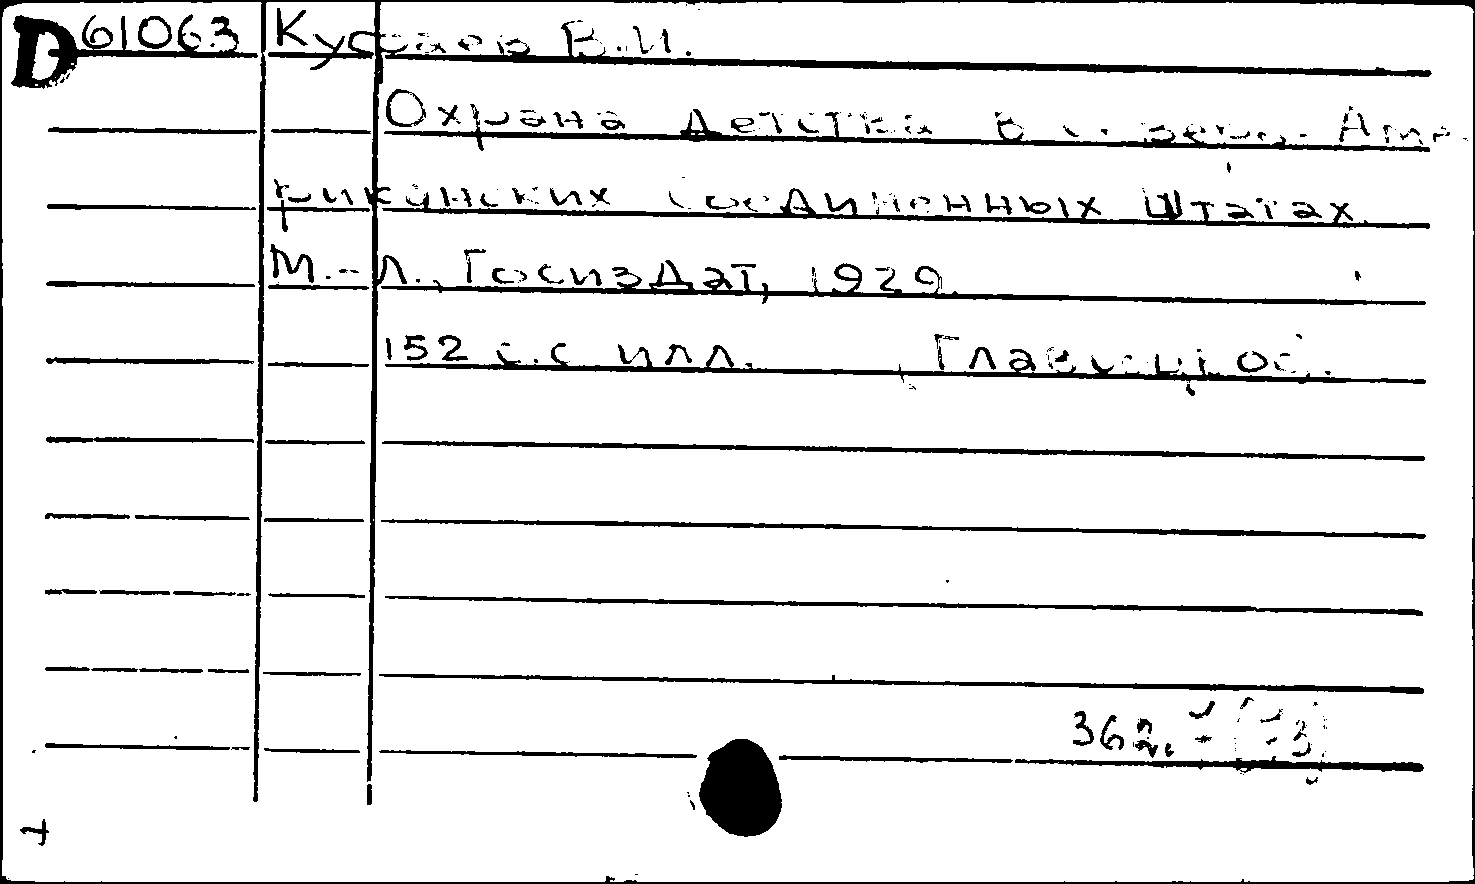 D 61063 Куфаев В.И.
Охрана детства в Северо-Аме-
риканских Соединенных Штатах.
М.-Л., Госиздат, 1929.
152 с.с илл. Главсоцвос.
362.